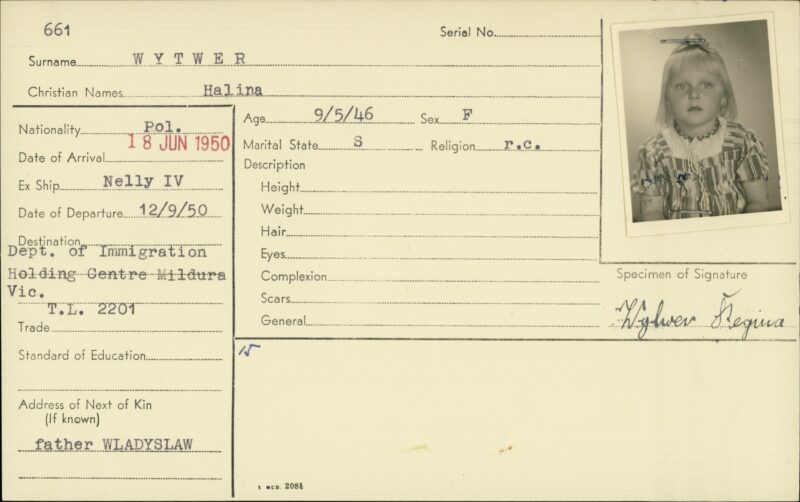 661
Serial No.
Surname WYTWER
Christian Names Halina
Nationality Pol.
Date of Arrival 18 JUN 1950
Ex Ship Nelly IV
Date of Departure 12/9/50
Destination
Dept. of Immigration
Holding Centre Mildura
Vic.
T.L. 2201
Trade
Standard of Education
Address of Next of Kin
(If known)
father WLADYSLAW
Age 9/5/46 Sex F
Marital State S Religion r.c.
Description
Height
Weight
Hair
Eyes
Complexion
Scars
General
15
Specimen of Signature
Wytwer Regina